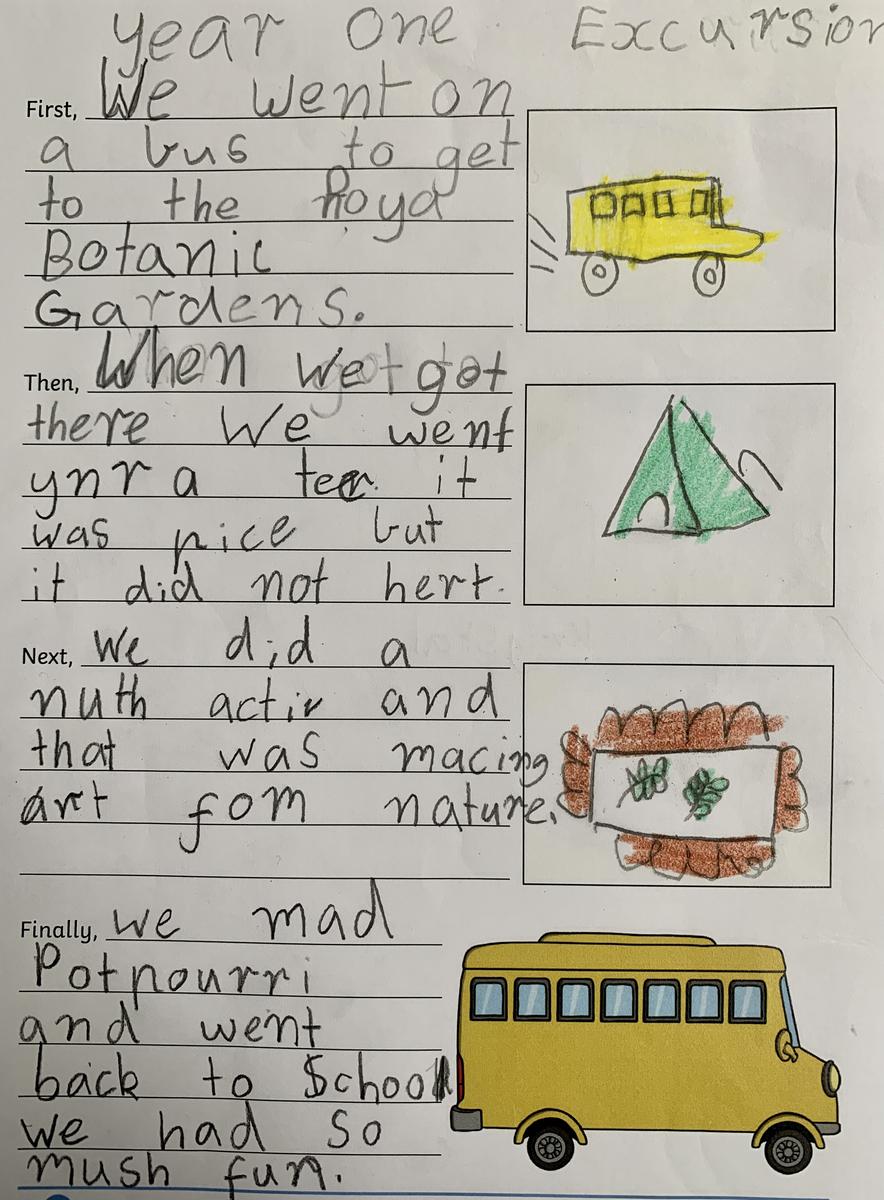 year one Excursion
First, We went on
a bus to get
to the Roya
Botanic
Gardens.
Then, When we got
there We went
ynr a teer it
was nice but
it did not hert.
Next, We did a
nuth activ and
that was macing
art fom nature.
Finally, we mad
Potpourri
and went
back to School
we had so
mush fun.